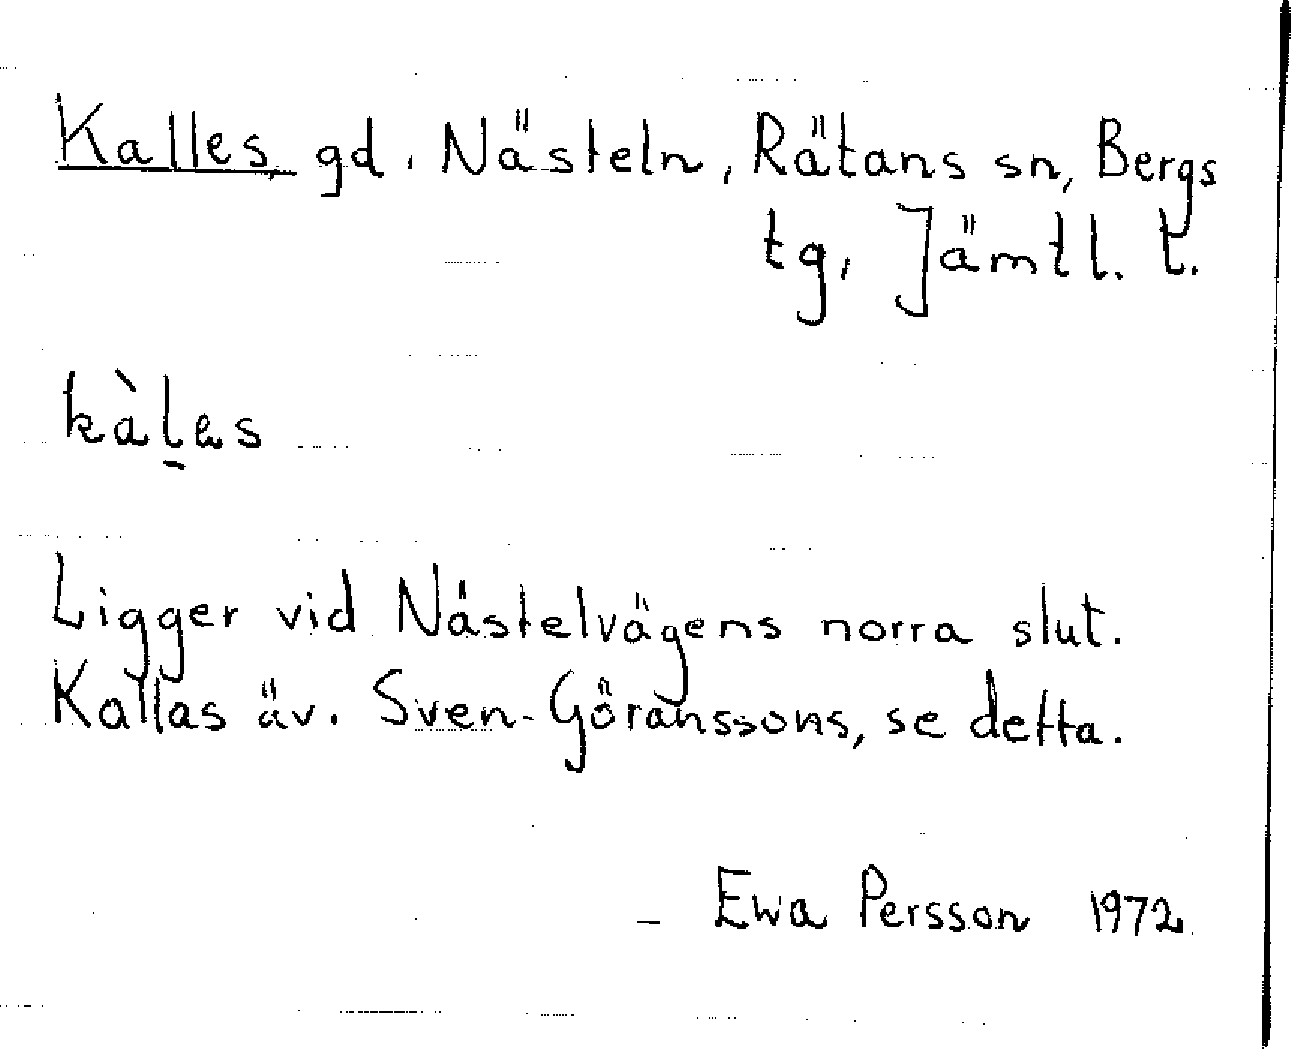 Kalles, gd. Nästeln, Rätans sn, Bergs
tg, Jämtl. l.
kàl̠as
Ligger vid Nästelvägens norra slut.
Kallas äv. Sven-Göranssons, se detta.
– Ewa Persson 1972